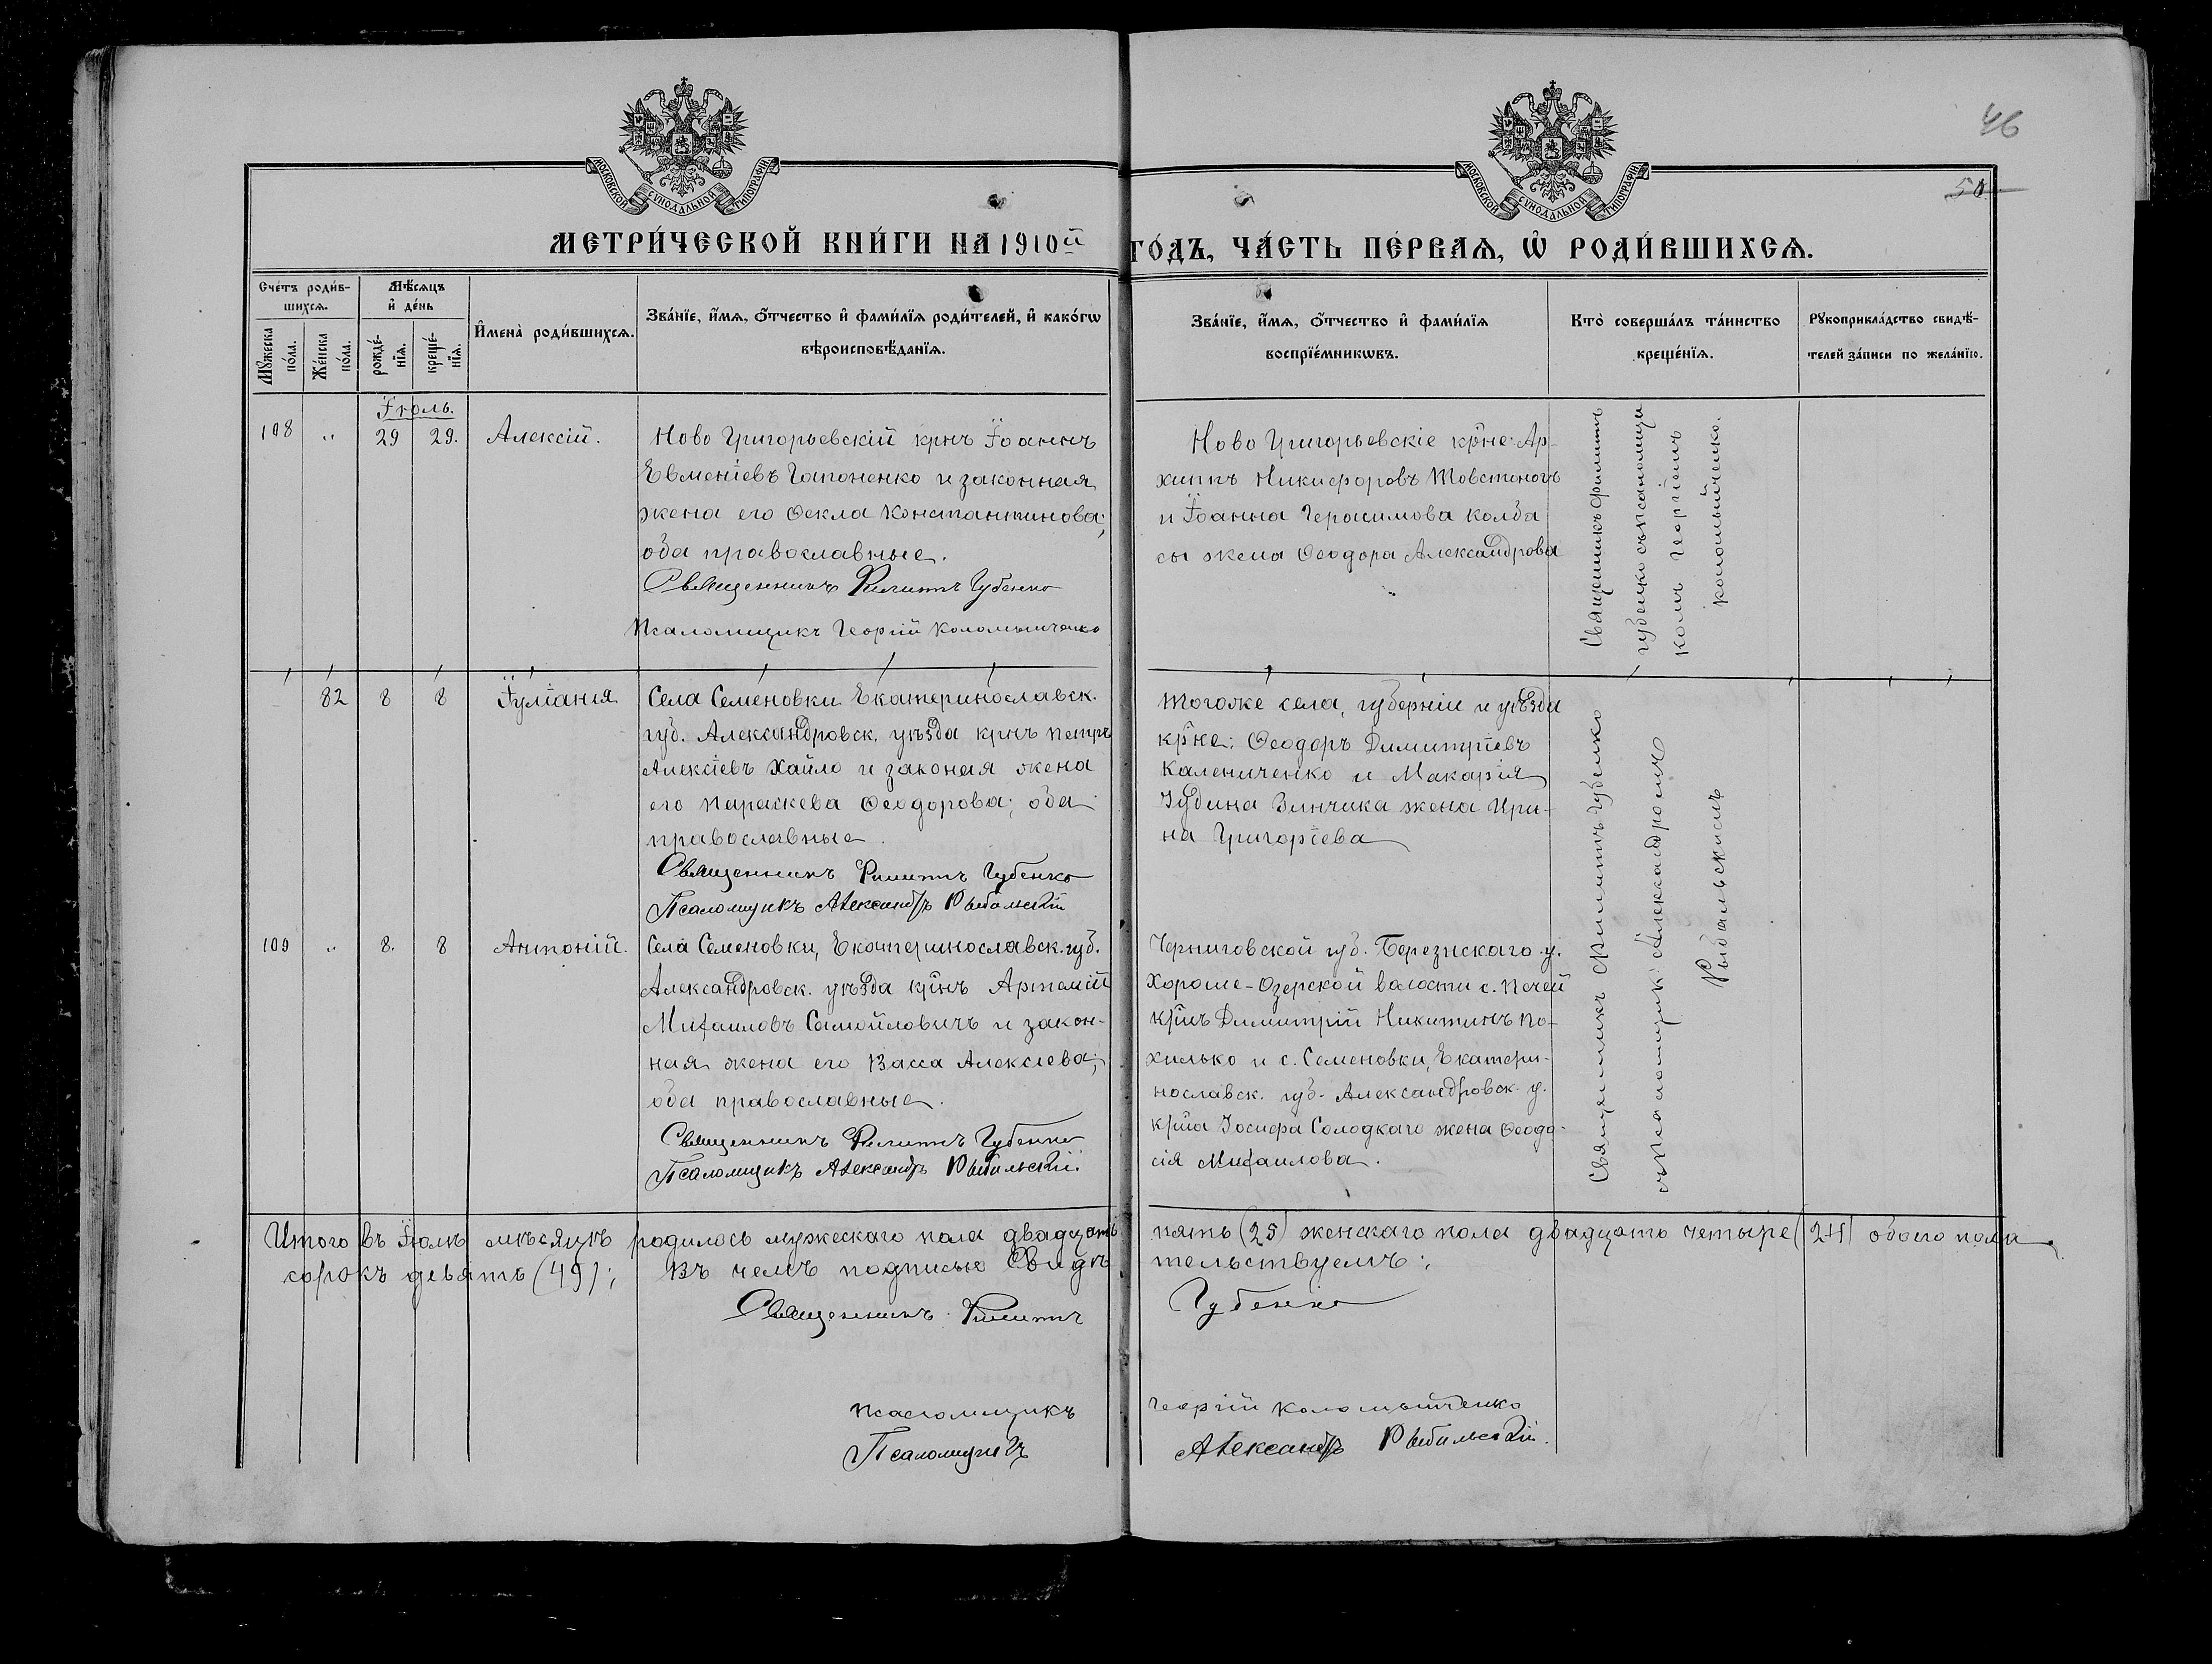 46
50
МОСКОВСКОЙ СУНОДАЛЬНОЙ ТИПОГРАФІИ
МОСКОВСКОЙ СУНОДАЛЬНОЙ ТИПОГРАФІИ
МЕТРИ́ЧЕСКОЙ КНИ́ГИ НА 1910й ГО́ДЪ, ЧА́СТЬ ПЕ́РВАЯ, Ѡ РОДИ́ВШИХСЯ.
Сче́тъ роди́в-
шихся.
Мѣ́сяцъ
и де́нь
Мꙋжеска
по́ла.
Же́нска
по́ла.
рожде́-
нїя.
креще́-
нїя.
Имена̀ роди́вшихся.
Зва́нїе, и́мя, о́тчество и фами́лїя роди́телей, и како́гѡ
вѣроисповѣ́данїя.
Зва́нїе, и́мя, о́тчество и фами́лїя
воспрїе́мникѡвъ.
Кто̀ соверша́лъ та́инство
креще́нїя.
Рꙋкоприкла́дство свидѣ́-
телей за́писи по жела́нїю.
Іюль.
108 „ 29 29. Алексій.
Ново Григорьевскій крнъ Іоаннъ
Евменіевъ Гапоненко и законная
жена его Ѳекла Константинова;
оба православные.
Священникъ Филиппъ Губенко
Псаломщикъ Георгій Коломыйченко
Ново Григорьевскіе крне: Ар-
хиппъ Никифоровъ Товстоногъ
и Іоанна Герасимова Колба
сы жена Ѳеодора Александрова
Священникъ Филиппъ
Губенко съ псаломщи
комъ Георгіемъ
Коломыйченко.
82 8 8 Іуліанія
Села Семеновки Екатеринославск.
губ. Александровск. уѣзда крнъ Петръ
Алексіевъ Хайло и законая жена
его Параскева Ѳеодорова; оба
православные.
Священникъ Филиппъ Губенко
Псаломщикъ Александръ Рыбальскій
Тогоже села, губерніи и уѣзда
крне: Ѳеодоръ Димитріевъ
Калениченко и Макарія
Зинчика жена Ири-
на Григоріева
109 „ 8. 8 Антоній.
Села Семеновки, Екатеринославск. губ.
Александровск. уѣзда крнъ Артемій
Михаиловъ Самойловичъ и закон-
ная жена его Васса Алексіева;
оба православные.
Священникъ Филиппъ Губенко
Псаломщикъ Александръ Рыбальскій.
Черниговской губ. Березнскаго у.
Хороше-Озерской волости с. Печей
крнъ Димитрій Никитинъ По-
хилько и с. Семеновки, Екатери-
нославск. губ. Александровск. у.
крна Іосифа Солодкаго жена Ѳеодо-
сія Михаилова.
Священникъ Филиппъ Губенко
съ псаломщик. Александромъ
Рыбальскимъ
Итого въ Іюлѣ мѣсяцѣ родилось мужескаго пола двадцать пять (25) женскаго пола двадцать четыре (24) обоего пола
сорокъ девять (49); Въ чемъ подписью Свидѣтельствуемъ:
Священникъ Филиппъ Губенко
Псаломщикъ Георгій Коломыйченко
Псаломщикъ Александръ Рыбальскій.